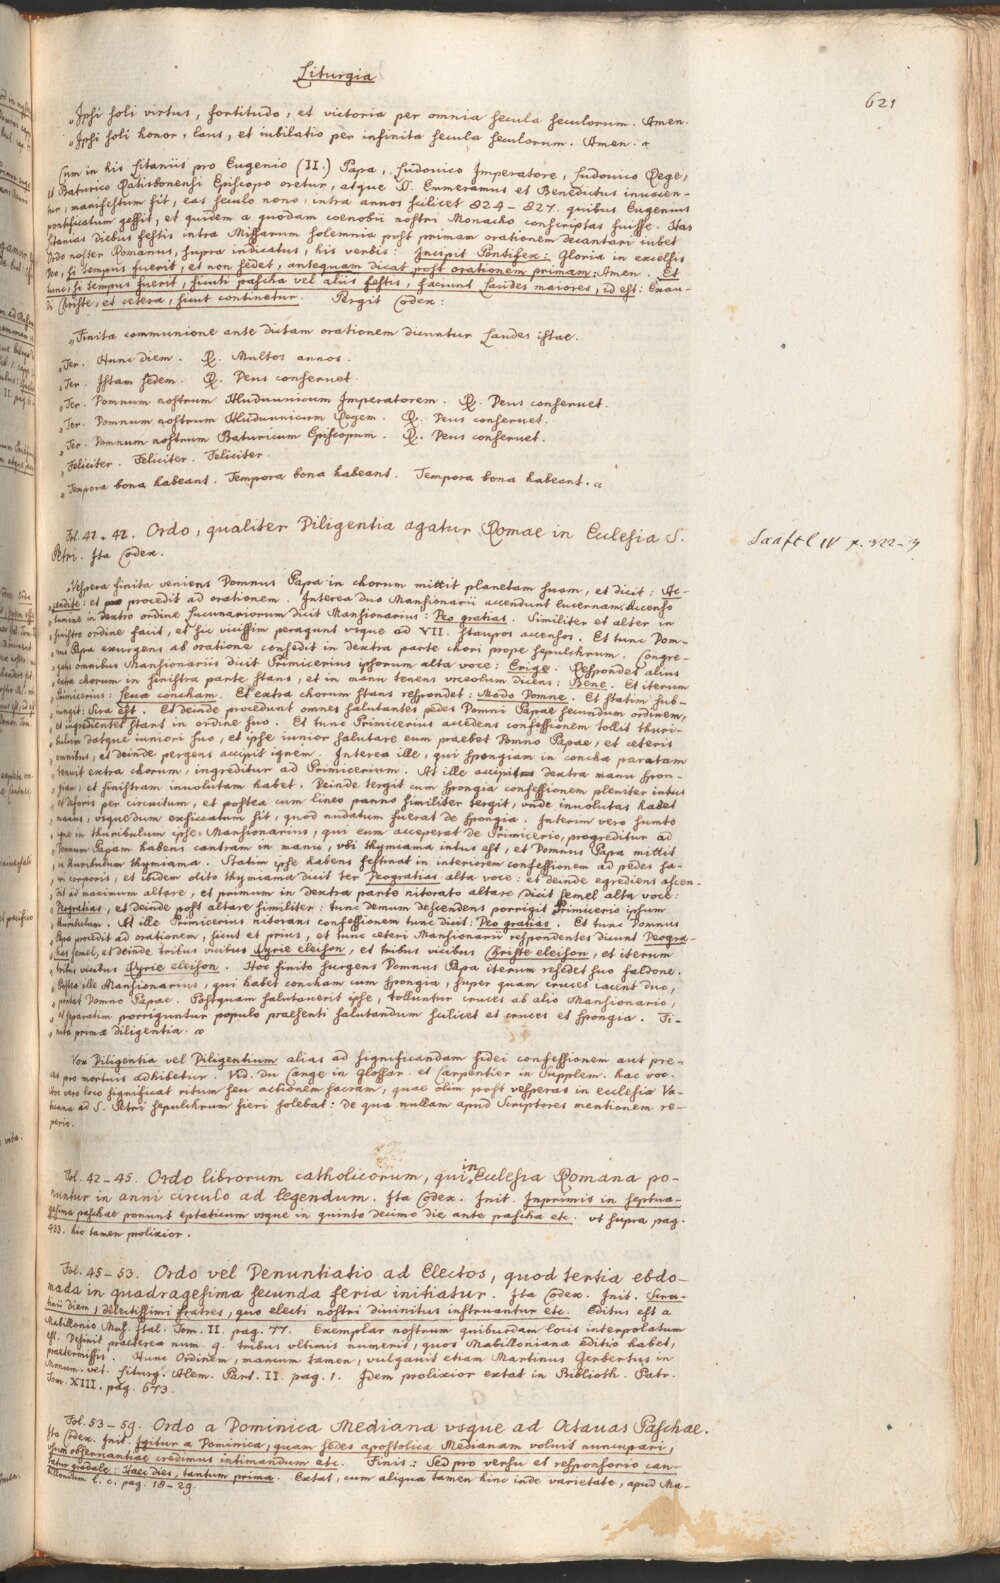 Liturgia
621
„Ipsi soli virtus, fortitudo, et victoria per omnia secula seculorum. Amen.
„Ipsi soli honor, laus, et iubilatio per infinita secula seculorum. Amen. „
Cum in his Litaniis pro Eugenio (II.) Papa, Ludovico Imperatore, Ludovico Rege,
et Baturico Ratisbonensi Episcopo oretur, atque S. Emmeramus et Benedictus inuocen-
tur, manifestum sit, eas seculo nono, intra annos scilicet 824–827. quibus Eugenius
pontificatum gessit, et quidem a quodam coenobii nostri Monacho conscriptas fuisse. Has
Litanias diebus festis intra Missarum solemnia post primam orationem decantari iubet
Ordo noster Romanus, supra indicatus, his verbis: Incipit Pontifex: Gloria in excelsis
Deo, si tempus fuerit, et non sedet, antequam dicat post orationem primam: Amen. Et
tunc si tempus fuerit, sicuti pascha vel aliis festis, faciunt Laudes maiores, id est: Exau-
di Christe, et cetera, sicut continetur. Pergit Codex:
„Finita communione ante dictam orationem dicuntur Laudes istae.
„Ter. Hunc diem. ℟. Multos annos.
„Ter. Istam sedem. ℟. Deus conseruet.
„Ter. Domnum nostrum Hluduuicum Imperatorem. ℟. Deus conseruet.
„Ter. Domnum nostrum Hluduuicum Regem. ℟. Deus conseruet.
„Ter. Domnum nostrum Baturicum Episcopum. ℟. Deus conseruet.
„Feliciter. Feliciter. Feliciter.
„Tempora bona habeant. Tempora bona habeant. Tempora bona habeant. „
Fol. 41. 42. Ordo, qualiter Diligentia agatur Romae in Ecclesia S.
Petri. Ita Codex.
Sanftl IV p. 322–3
„Vespera finita veniens Domnus Papa in chorum mittit planetam suam, et dicit: Ac-
„cendite: et procedit ad orationem. Interea duo Mansionarii accendunt lucernam. Accenso
„lumine in dextro ordine lucunariorum dicit Mansionarius: Deo gratias. Similiter et alter in
„sinistro ordine facit, et sic vicissim peragunt vsque ad VII. stauros accensos. Et tunc Dom-
„nus Papa exurgens ab oratione consedit in dextra parte chori prope sepulchrum. Congre-
„gatis omnibus Mansionariis dicit Primicerius ipsorum alta voce: Erige. Respondet alius
„extra chorum in sinistra parte stans, et in manu tenens vrceolum dicens: Bene. Et iterum
„Primicerius: Leua concham. Et extra chorum stans respondet: Modo Domne. Et statim sub-
„iungit: Sira est. Et deinde procedunt omnes salutantes pedes Domni Papae secundum ordinem,
„et ingredientes stant in ordine suo. Et tunc Primicerius accedens confessionem tollit thuri-
„bulum datque iuniori suo, et ipse iunior salutare eum praebet Domno Papae, et ceteris
„omnibus, et deinde pergens accipit ignem. Interea ille, qui spongiam in concha paratam
„tenuit extra chorum, ingreditur ad Primicerium. At ille accipit dextra manu spon-
„giam, et sinistram inuolutam habet. Deinde tergit cum spongia confessionem pleniter intus
„et deforis per circuitum, et postea cum lineo panno similiter tergit, vnde inuolutas habet
„manus, vsque dum exsiccatum sit, quod nudatum fuerat de spongia. Interim vero sumto
„igne in thuribulum ipse Mansionarius, qui eum acceperat de Primicerio, progreditur ad
„Domnum Papam habens cantram in manu, vbi thymiama intus est, et Domnus Papa mittit
„in thuribulum thymiama. Statim ipse habens festinat in interiorem confessionem ad pedes sa-
„cri corporis, et ibidem olito thymiama dicit ter Deogratias alta voce: et deinde egrediens ascen-
„dit ad maximum altare, et primum in dextra parte nitorato altare dicit semel alta voce:
„Deogratias, et deinde post altare similiter: tunc demum descendens porrigit Primicerio ipsum
„thuribulum. At ille Primicerius nitorans confessionem tunc dicit: Deo gratias. Et tunc Domnus
„Papa procedit ad orationem, sicut et prius, et tunc ceteri Mansionarii respondentes dicunt Deogra-
„tias semel, et deinde tribus vicibus Kyrie eleison, et tribus vicibus Christe eleison, et iterum
„tribus vicibus Kyrie eleison. Hoc finito surgens Domnus Papa iterum residet suo faldone.
„Postea ille Mansionarius, qui habet concham cum spongia, super quam cruces iacent duo,
„portat Domno Papae. Postquam salutauerit ipse, tolluntur cruces ab alio Mansionario,
„et separatim porriguntur populo praesenti salutandum scilicet et cruces et spongia. Fi-
„nita prima diligentia. „
Vox Diligentia vel Diligentium alias ad significandam fidei confessionem aut pre-
ces pro mortuis adhibetur. Vid. du Cange in Glossar. et Carpentier in Supplem. hac voc.
Hoc vero loco significat ritum seu actionem sacram, quae olim post vesperas in ecclesia Va-
ticana ad S. Petri sepulchrum fieri solebat: de qua nullam apud Scriptores mentionem re-
perio.
Fol. 42–45. Ordo librorum catholicorum, qui in Ecclesia Romana po-
nuntur in anni circulo ad legendum. Ita Codex. Init. Inprimis in septua-
gesima paschae ponunt eptaticum vsque in quinto decimo die ante pascha etc. vt supra pag.
433. hic tamen prolixior.
Fol. 45–53. Ordo vel Denuntiatio ad Electos, quod tertia ebdo-
mada in quadragesima secunda feria initiatur. Ita Codex. Init. Scru-
tinii diem, dilectissimi fratres, quo electi nostri divinitus instruantur etc. Editus est a
Mabillonio Mus. Ital. Tom. II. pag. 77. Exemplar nostrum quibusdam locis interpolatum
est. Desinit praeterea num. 9. tribus vltimis numeris, quos Mabilloniana editio habet,
praetermissis. Hunc Ordinem, mancum tamen, vulgauit etiam Martinus Gerbertus in
Monum. vet. Liturg. Alem. Part. II. pag. 1. Idem prolixior extat in Biblioth. Patr.
Tom. XIII. pag. 673.
Fol. 53–59. Ordo a Dominica Mediana vsque ad Octauas Paschae.
Ita Codex. Init. Igitur a Dominica, quam sedes apostolica Medianam voluit nuncupari,
cum obseruantiae credimus intimandum etc. Finis: Sed pro versu et responsorio can-
tatur gradale: Haec dies, tantum prima. Extat, cum aliqua tamen hinc inde varietate, apud Ma-
billonium l. c. pag. 18–29.